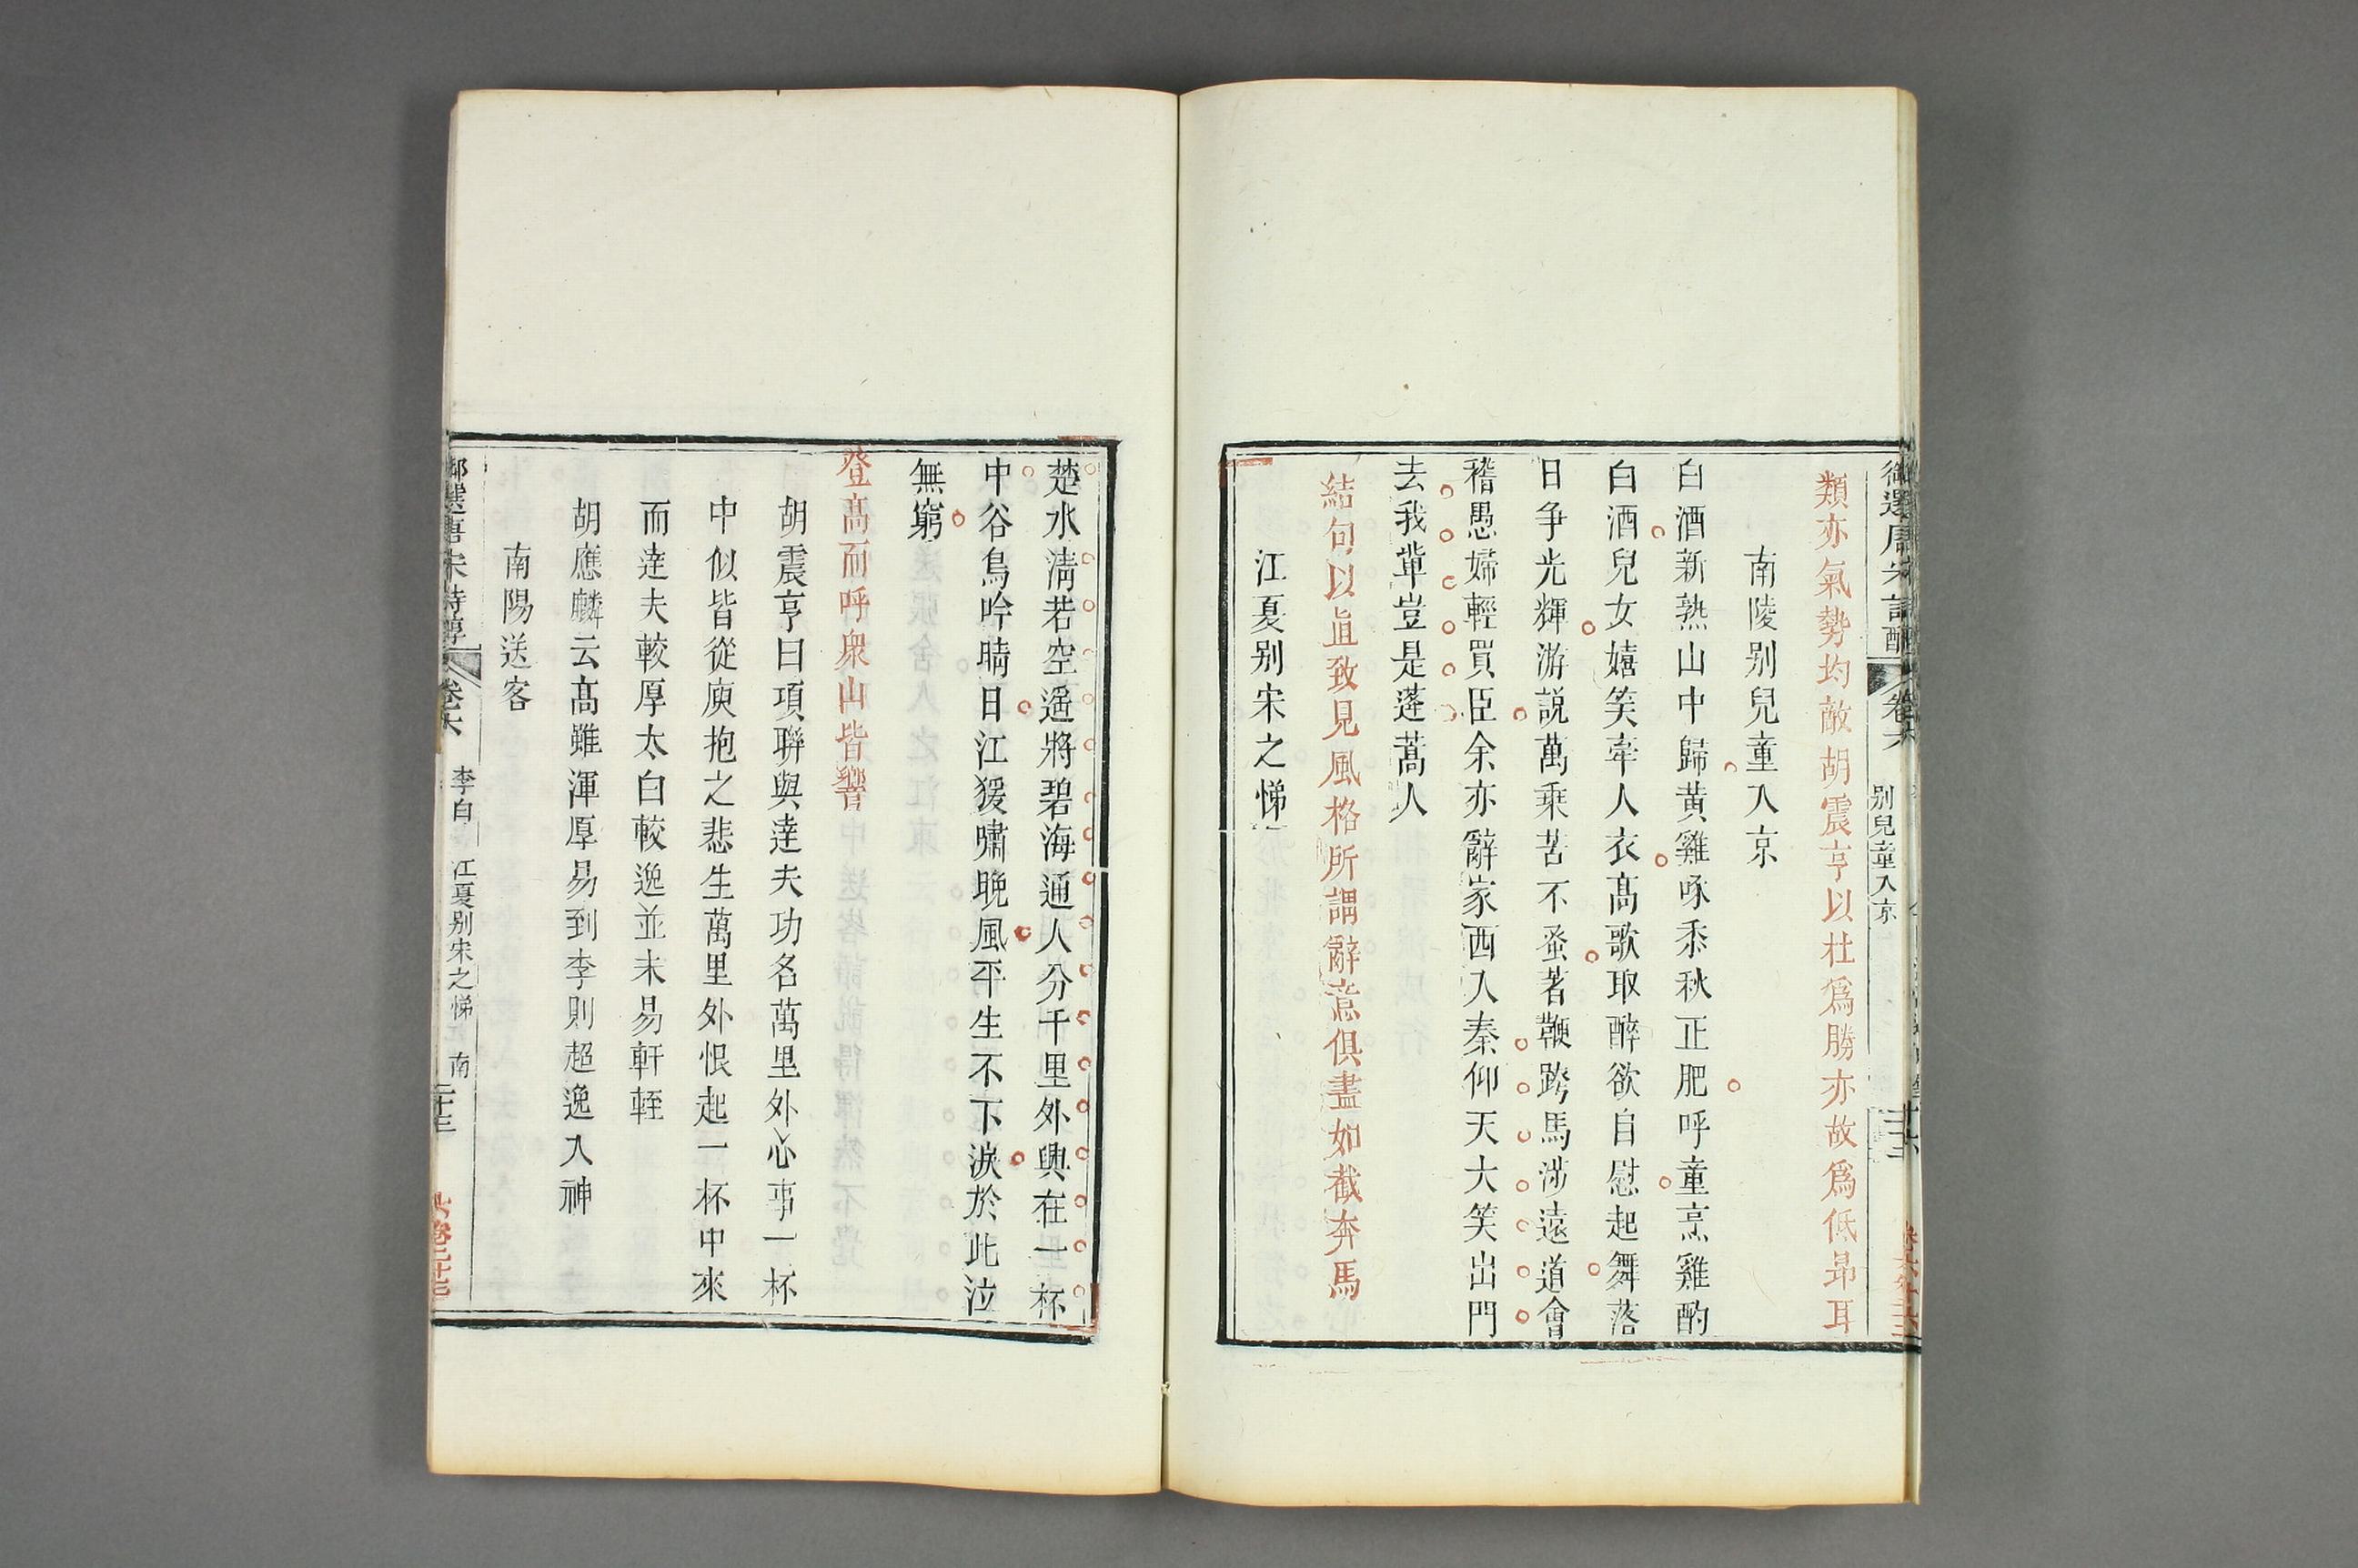 類亦氣勢均敵胡震亨以杜爲勝亦故爲低昻耳
南陵别兒童入京
白酒新熟山中歸黄雞啄黍秋正肥呼童烹雞酌
白酒兒女嬉笑牽人衣髙歌取醉欲自慰起舞落
日争光輝游説萬乗苦不蚤著鞭跨馬涉遠道會
稽愚婦輕買臣余亦辭家西入秦仰天大笑出門
去我軰豈是蓬蒿人
結句以直致見風格所謂辭意俱盡如截奔馬
江夏别宋之悌
楚水清若空遥將碧海通人分千里外興在一杯
中谷鳥吟晴日江猨嘯晚風平生不下淚於此泣
無窮
登高而呼衆山皆響
胡震亨曰項聨與達夫功名萬里外心事一杯
中似皆從庾抱之悲生萬里外恨起一杯中來
而達夫較厚太白較逸並未易軒輊
胡應麟云髙雖渾厚易到李則超逸入神
南陽送客
御選唐宋詩醇 卷六 别兒童入京
御選唐宋詩醇 卷六 李白 江夏别宋之悌 南